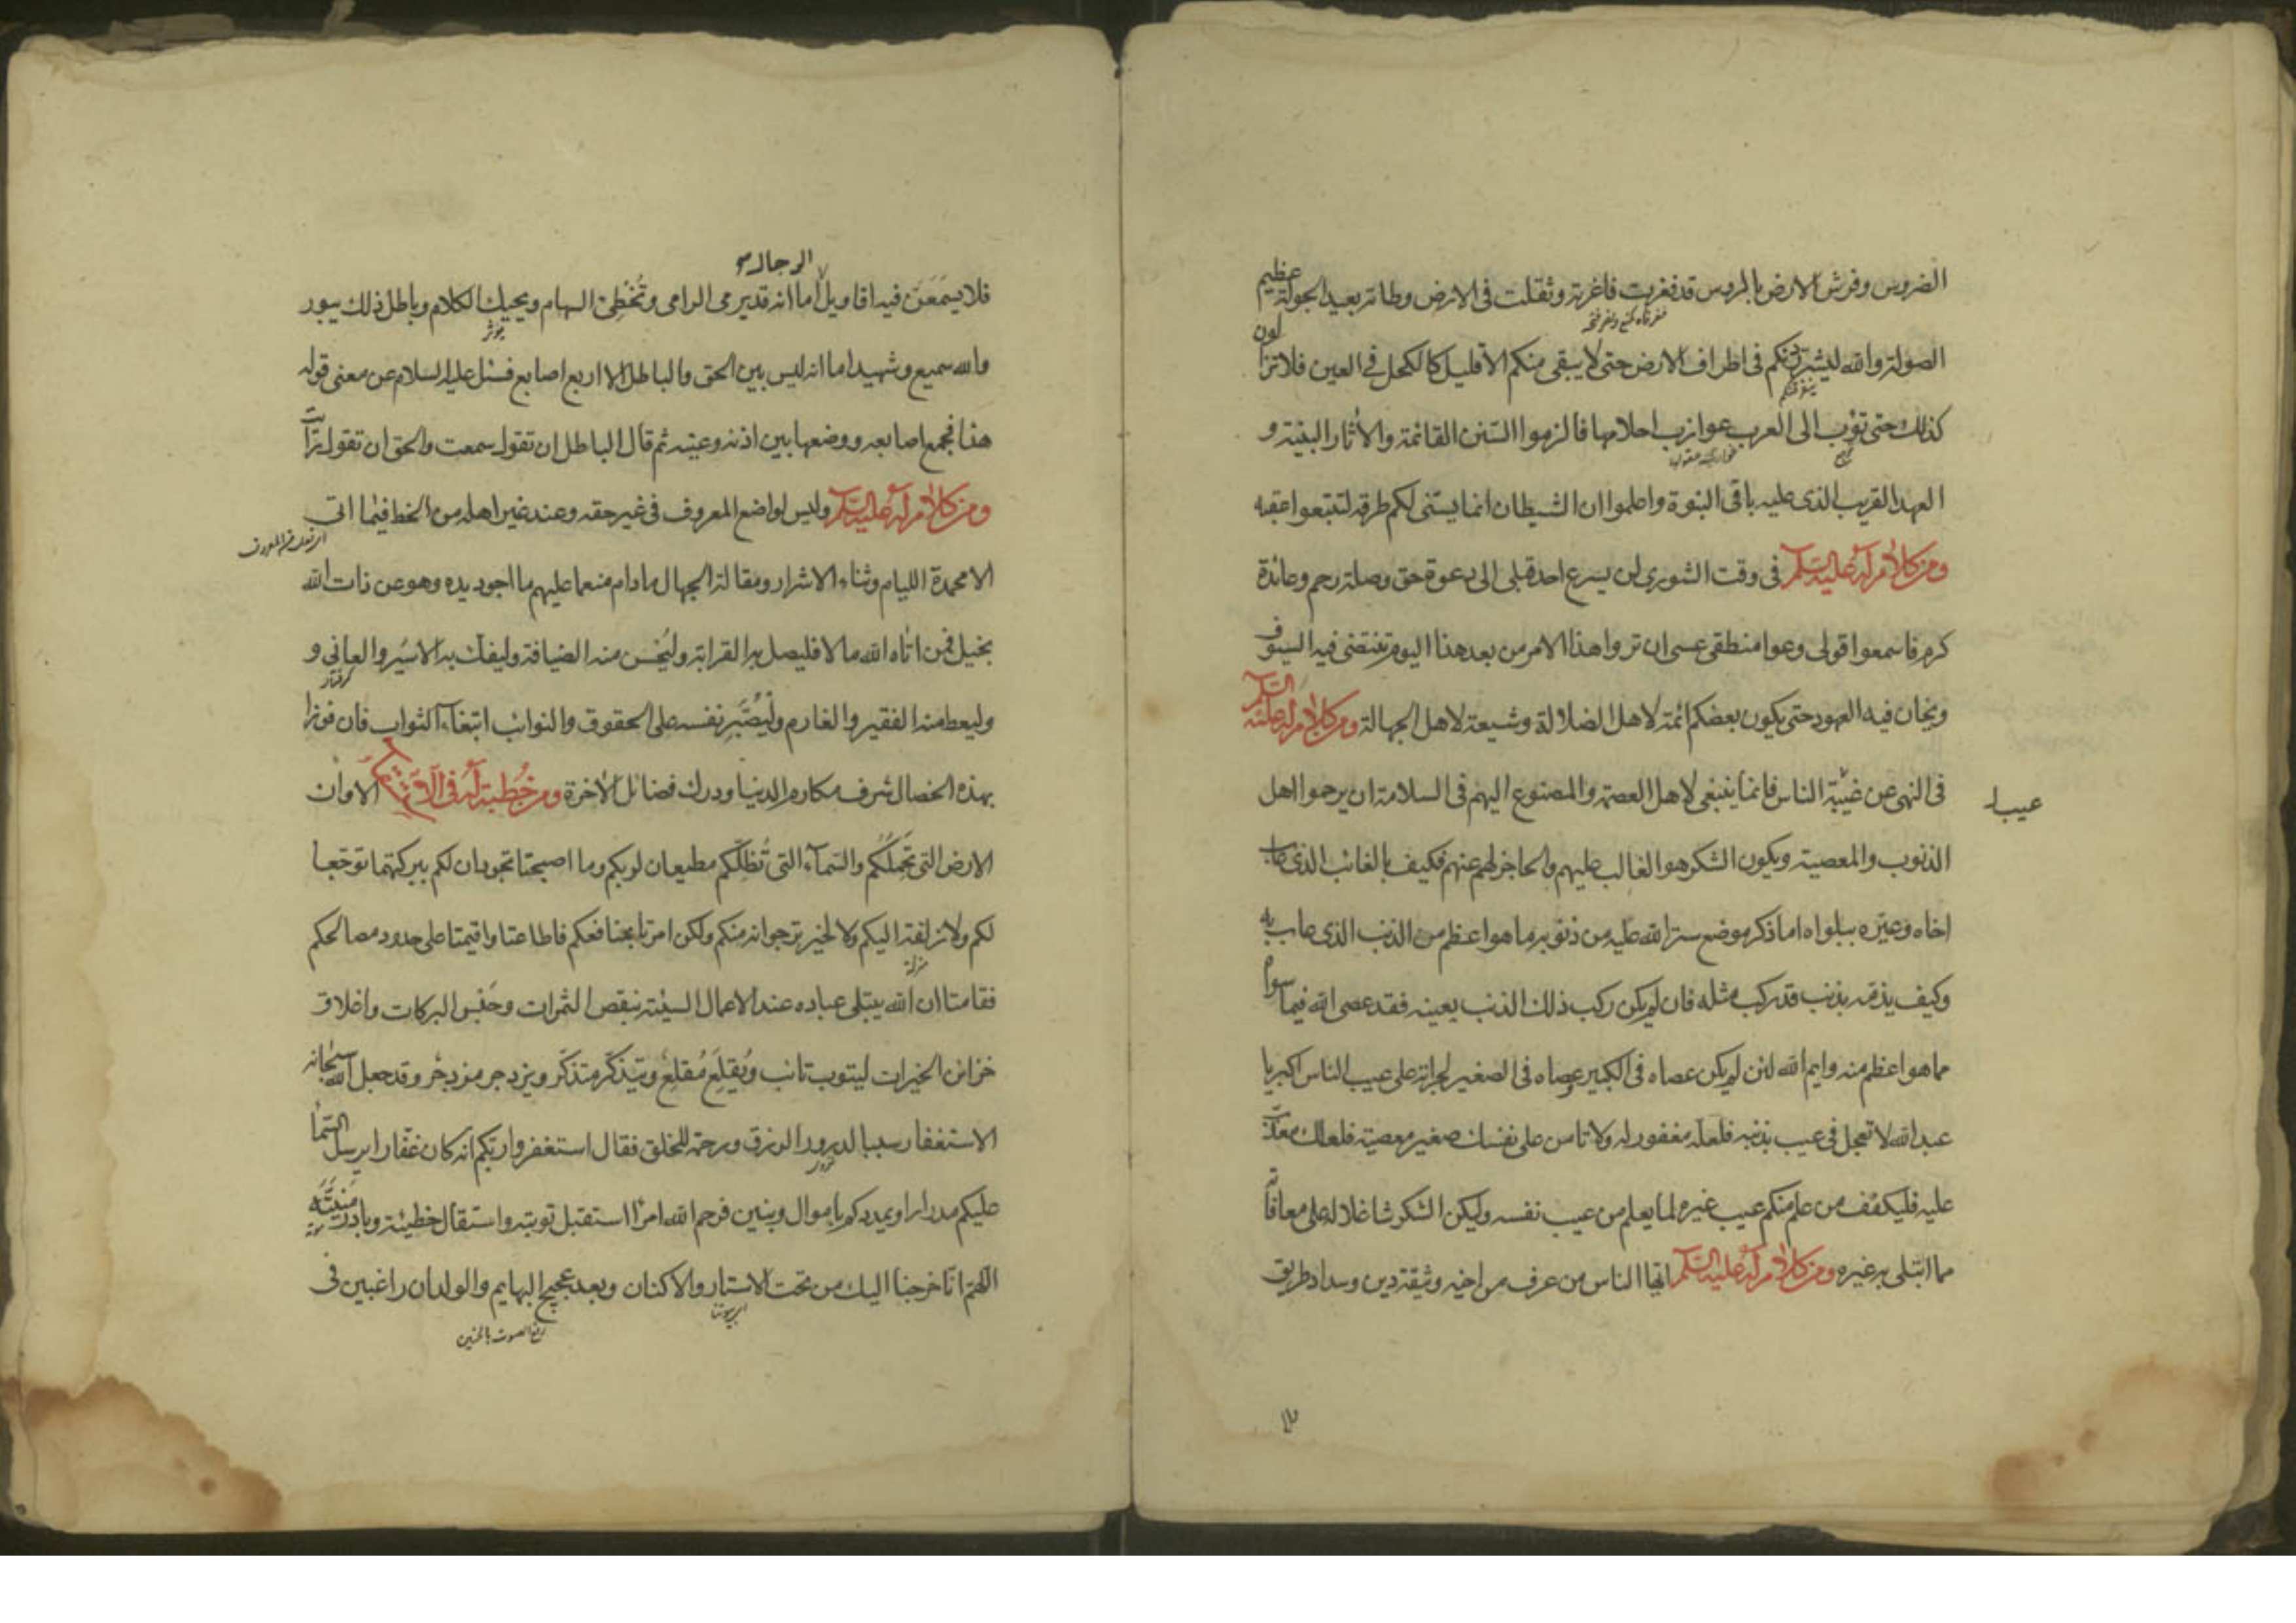 الضروس وفرش الارض بالروس قد فغرت فاغرته وثقلت فى الارض وطاته بعيد الجولة عظيم
الصولة والله ليشردنكم فى اطراف الارض حتى لا يبقى منكم الا قليل كالكحل فى العين فلا تزالون
كذلك حتى تؤب الى العرب عوازب احلامها فالزموا السنن القائمة والاثار البينة و
العهد القريب الذى عليه باقى النبوة واعلموا ان الشيطان انما يسنى لكم طرقه لتتبعوا عقبه
ومن كلام له عليه السلام فى وقت الشورى لن يسرع احد قبلى الى دعوة حق وصلة رحم وعائدة
كرم فاسمعوا قولى وعوا منطقى عسى ان تروا هذا الامر من بعد هذا اليوم تنتضى فيه السيوف
ويخان فيه العهود حتى يكون بعضكم ائمة لاهل الضلالة وشيعة لاهل الجهالة ومن كلام له عليه السلم
فى النهى عن غيبة الناس فانما ينبغى لاهل العصمة والمصنوع اليهم فى السلامة ان يرحموا اهل
عيب
الذنوب والمعصية ويكون الشكر هو الغالب عليهم والحاجز لهم عنهم فكيف بالغائب الذى عاب
اخاه وعيره ببلواه اما ذكر موضع ستر الله عليه من ذنوبه ما هو اعظم من الذنب الذى عاب به
وكيف يذمه بذنب قد ركب مثله فان لم يكن ركب ذلك الذنب بعينه فقد عصى الله فيما سواه
مما هو اعظم منه وايم الله لئن لم يكن عصاه فى الكبير وعصاه فى الصغير لجراته على عيب الناس اكبر يا
عبد الله لا تعجل فى عيب بذنبه فلعله مغفور له ولا تامن على نفسك صغير معصية فلعلك معذب
عليه فليكفف من علم منكم عيب غيره لما يعلم من عيب نفسه وليكن الشكر شاغلا له على معافاته
مما ابتلى به غيره ومن كلام له عليه السلم ايها الناس من عرف من اخيه وثيقة دين وسداد طريق
فلا يسمعن فيه اقاويل الرجال اما انه قد يرمى الرامى وتخطئ السهام ويحيك الكلام وباطل ذلك يبور
يوثر
والله سميع وشهيد اما انه ليس بين الحق والباطل الا اربع اصابع فسئل عليه السلام عن معنى قوله
هذا فجمع اصابعه ووضعها بين اذنه وعينه ثم قال الباطل ان تقول سمعت والحق ان تقول رايت
ومن كلام له عليه السلم وليس لواضع المعروف فى غير حقه وعند غير اهله من الحظ فيما اتى
الا محمدة الليام وثناء الاشرار ومقالة الجهال ما دام منعما عليهم ما اجود يده وهو عن ذات الله
بخيل فمن اتاه الله مالا فليصل به القرابة وليحسن منه الضيافة وليفك به الاسير والعانى و
كرفتار
وليعط منه الفقير والغارم وليصبر نفسه على الحقوق والنوائب ابتغاء الثواب فان فوزا
بهذه الخصال شرف مكارم الدنيا ودرك فضائل الاخرة ومن خطبة له فى الاستسقاء الا وان
الارض التى تحملكم والسماء التى تظلكم مطيعان لربكم وما اصبحتا تجودان لكم ببركتهما توجعا
لكم ولا زلفة اليكم ولا لخير ترجوانه منكم ولكن امرتا بمنافعكم فاطاعتا واقيمتا على حدود مصالحكم
منزلة
فقامتا ان الله يبتلى عباده عند الاعمال السيئة بنقص الثمرات وحبس البركات واغلاق
خزائن الخيرات ليتوب تائب ويقلع مقلع ويتذكر متذكر ويزدجر مزدجر وقد جعل الله سبحانه
الاستغفار سببا لدرور الرزق ورحمة للخلق فقال استغفروا ربكم انه كان غفارا يرسل السماء
عليكم مدرارا ويمددكم باموال وبنين فرحم الله امرءا استقبل توبته واستقال خطيئته وبادر منيته
اللهم انا خرجنا اليك من تحت الاستار والاكنان وبعد عجيج البهايم والولدان راغبين فى
رفع الصوت بالحنين